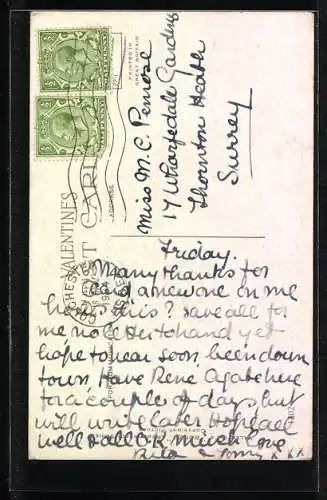 Miss M. C. Penrose
17 Wharfedale Gardens
Thornton Heath
Surrey
Friday.
Many thanks for
card a new one on me
hows this? save all for
me no letter to hand yet
hope to hear soon, been down
town, have Rene Agate here
for a couple of days but
will write later Hope all
well & all O.K. Much love
x x x
POST CARD
VALENTINES
PRINTED IN
GREAT BRITAIN
ADDRESS